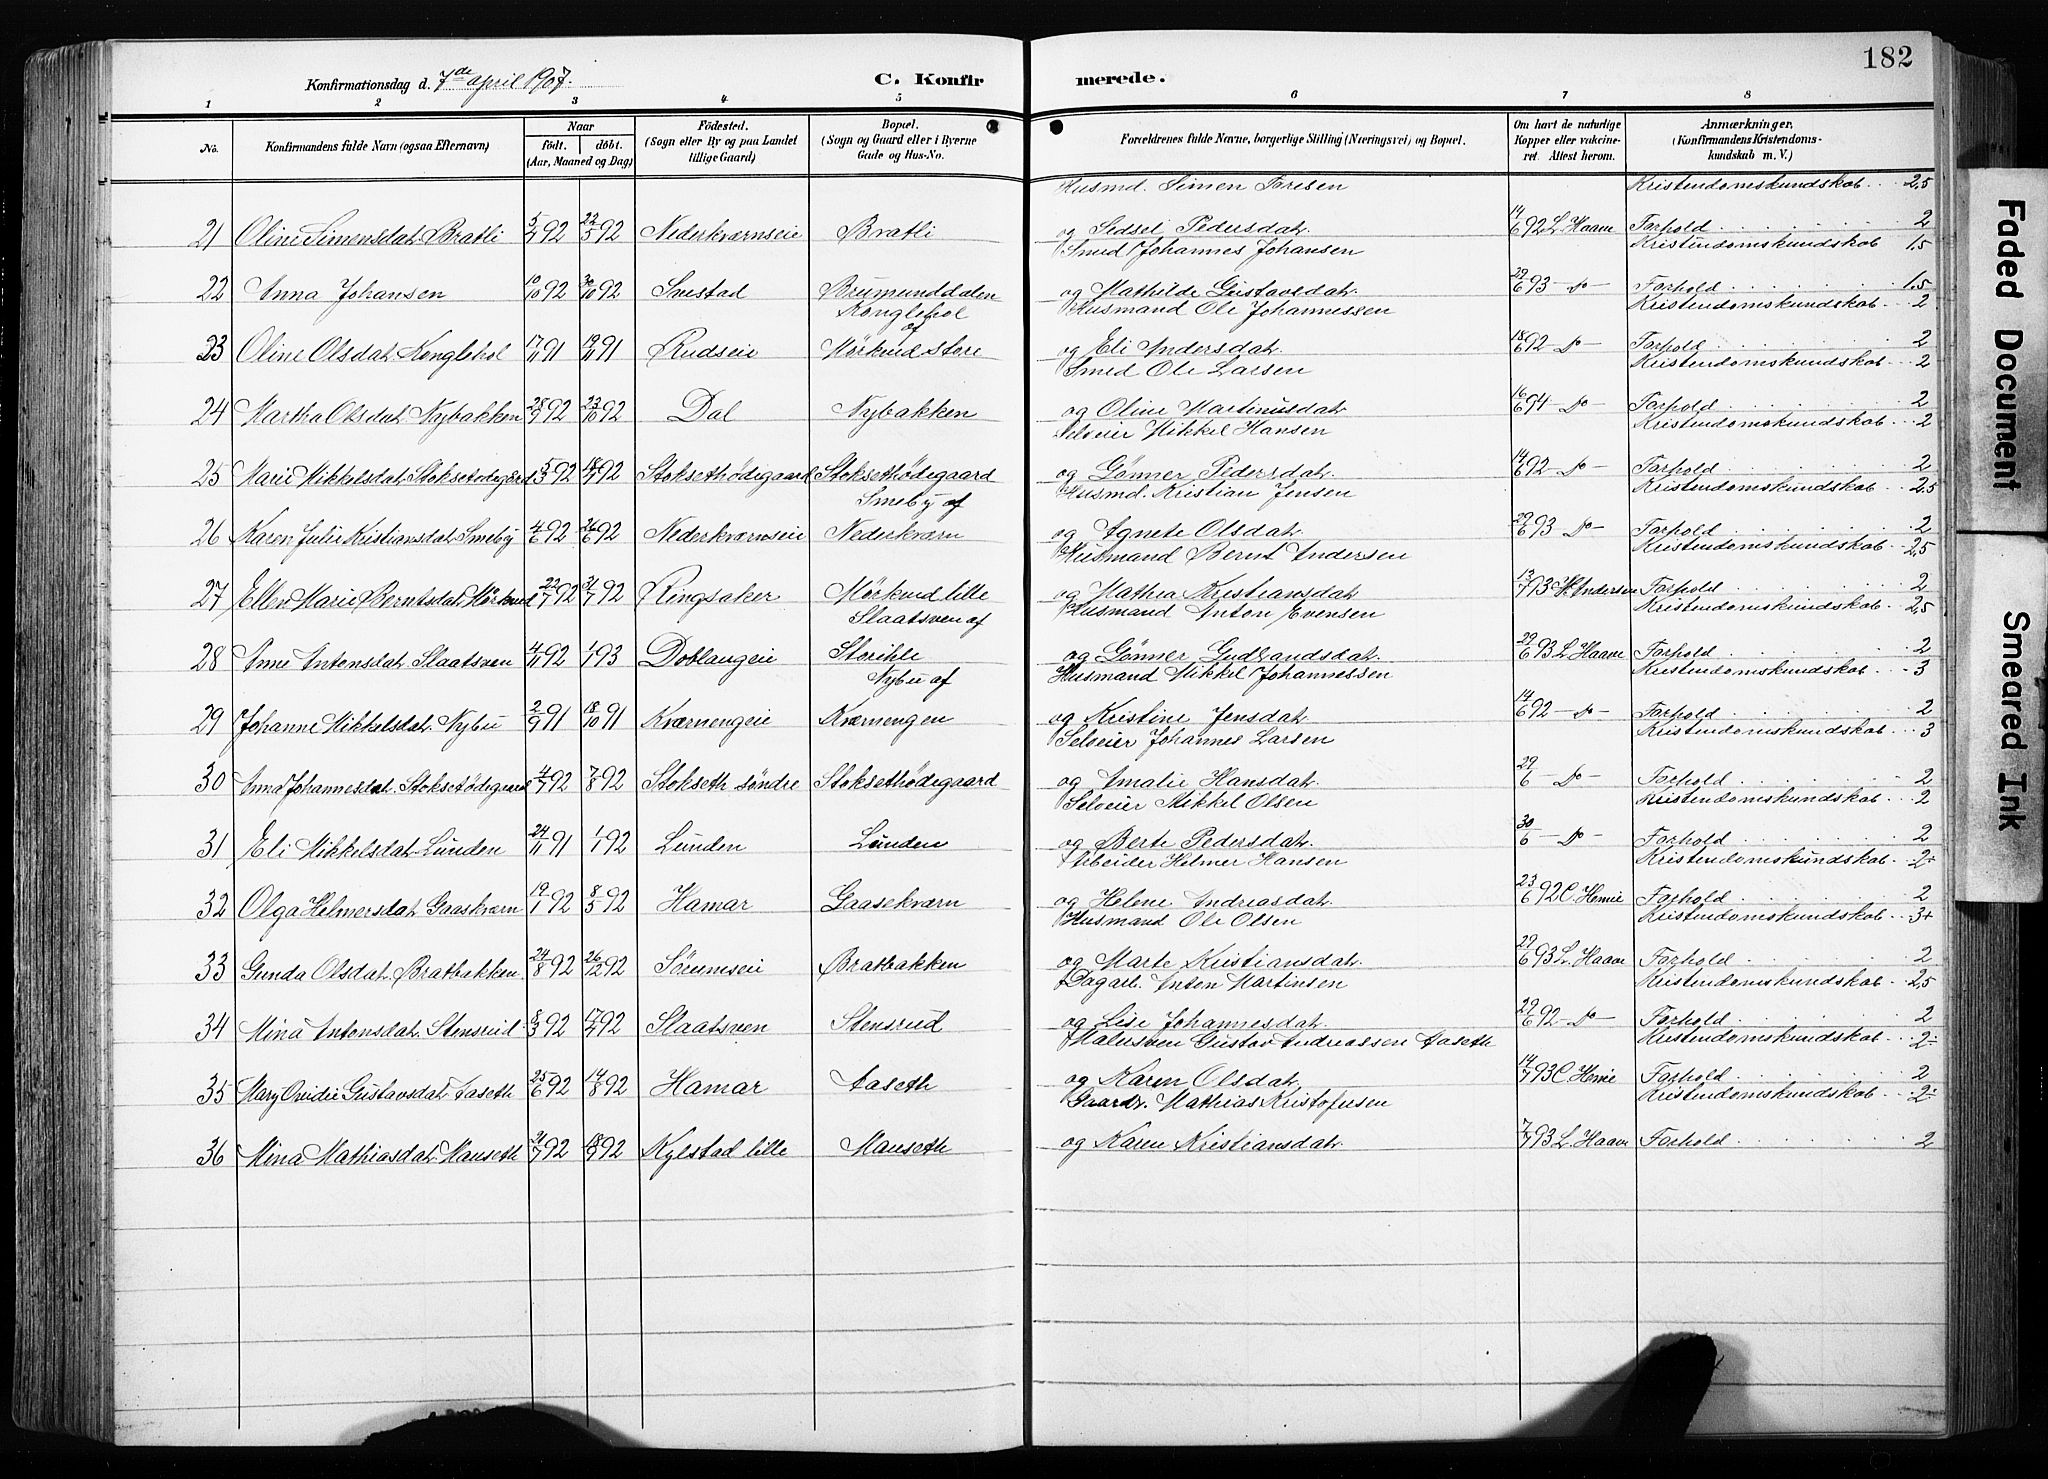 182
Konfirmationsdag d. 7de april 1907.
C. Konfirmerede.
1 2 3 4 5 6 7 8
No.
Konfirmandens fulde Navn (ogsaa Efternavn)
Naar
født. døbt.
(Aar, Maaned og Dag)
Fødested.
(Sogn eller By og paa Landet tillige Gaard)
Bopæl.
(Sogn og Gaard eller i Byerne Gade og Hus-No.
Forældrenes fulde Navne, borgerlige Stilling (Næringsvei) og Bopæl.
Om havt de naturlige Kopper eller vakcineret. Attest herom.
Anmærkninger.
(Konfirmandens Kristendomskundskab m. V.)
Husmd. Simen Toresen Kristendomskundskab 2,5
21 Oline Simensdat. Bratli 92 92 Nederkværnseie Bratli og Sedsel Pedersdat. 14/6 92 L. Haave Forhold 2
Smed Johannes Johansen Kristendomskundskab 1,5
22 Anna Johansen 19/10 92 30/10 92 Snestad Brumunddalen og Mathilde Gustavsdat. 29/6 93 -do- Forhold 1,5
Konglehol af Husmand Ole Johannessen Kristendomskundskab 2
23 Oline Olsdat. Konglehol 17/11 91 19/11 91 Rudseie Mörkved store og Eli Andersdat. 18/6 92 -do- Forhold 2
Smed Ole Larsen Kristendomskundskab 2
24 Martha Olsdat. Nybakken 28/9 92 23/10 92 Dal Nybakken og Oline Martinusdat. 16/6 94 -do- Forhold 2
Selveier Mikkel Hansen Kristendomskundskab 2
25 Marie Mikkelsdat. Stoksetödegård 5/3 92 92 Stoksethödegaard Stoksethödegaard og Gönner Pedersdat. 14/6 92 -do- Forhold 2
Smeby af Husmd. Kristian Jensen Kristendomskundskab 2,5
26 Karen Julie Kristiansdat. Smeby 4/6 92 26/6 92 Nederkværnseie Nederkværn og Agnete Olsdat. 29/6 93 -do- Forhold 2
Husmand Bernt Andersen Kristendomskundskab 2,5
27 Ellen Marie Berntsdat. Mörkved 22/7 92 31/7 92 Ringsaker Mörkved lille og Mathea Kristiansdat. 13/7 93 H. Andersen Forhold 2
Slaatsven af Husmand Anton Evensen Kristendomskundskab 2,5
28 Anne Antonsdat. Slaatsven 4/11 92 1/1 93 Doblaugeie Storihle og Gönner Gudbrandsdat. 29/6 93 L. Haave Forhold 2
Nybu af Husmand Mikkel Johannessen Kristendomskundskab 3
29 Johanne Mikkelsdat. Nybu 2/9 91 18/10 91 Kværnengeie Kværnengen og Kristine Jensdat. 14/6 92 -do- Forhold 2
Selveier Johannes Larsen Kristendomskundskab 3
30 Anna Johannesdat. Stoksetödegaard 92 7/8 92 Stokseth söndre Stoksethödegaard og Amalie Hansdat. 29/6 -do- Forhold 2
Selveier Mikkel Olsen Kristendomskundskab 2
31 Eli Mikkelsdat. Lunden 24/11 91 1/1 92 Lunden Lunden og Berte Pedersdat. 30/6 -do- Forhold 2
Arbeider Helmer Hansen Kristendomskundskab 2+
32 Olga Helmersdat. Gaaskværn 19/1 92 8/5 92 Hamar Gaasekværn og Helene Andreasdat. 23/6 92 C. Hemie Forhold 2
Husmand Ole Olsen Kristendomskundskab 3+
33 Gunda Olsdat. Bratbakken 24/8 92 26/12 92 Sörumseie Bratbakken og Marte Kristiansdat. 29/6 93 L. Haave Forhold 2
Dagarb. Anton Martinsen Kristendomskundskab 2,5
34 Mina Antonsdat. Stensrud 8/3 92 17/4 92 Slaatsven Stensrud og Lise Johannesdat. 29/6 92 -do- Forhold 2
Malersven Gustav Andreassen Aaseth Kristendomskundskab 2÷
35 Mary Ovidie Gustavsdat. Aaseth 25/6 92 14/8 92 Hamar Aaseth og Karen Olsdat. 14/7 93 C. Hemie Forhold 2
Gaardr. Mathias Kristofersen Kristendomskundskab 2÷
36 Mina Mathiasdat. Manseth 21/7 92 18/9 92 Kylstad lille Manseth og Karen Kristiansdat. 7/7 93 L. Haave Forhold 2
Faded Document
Smeared Ink